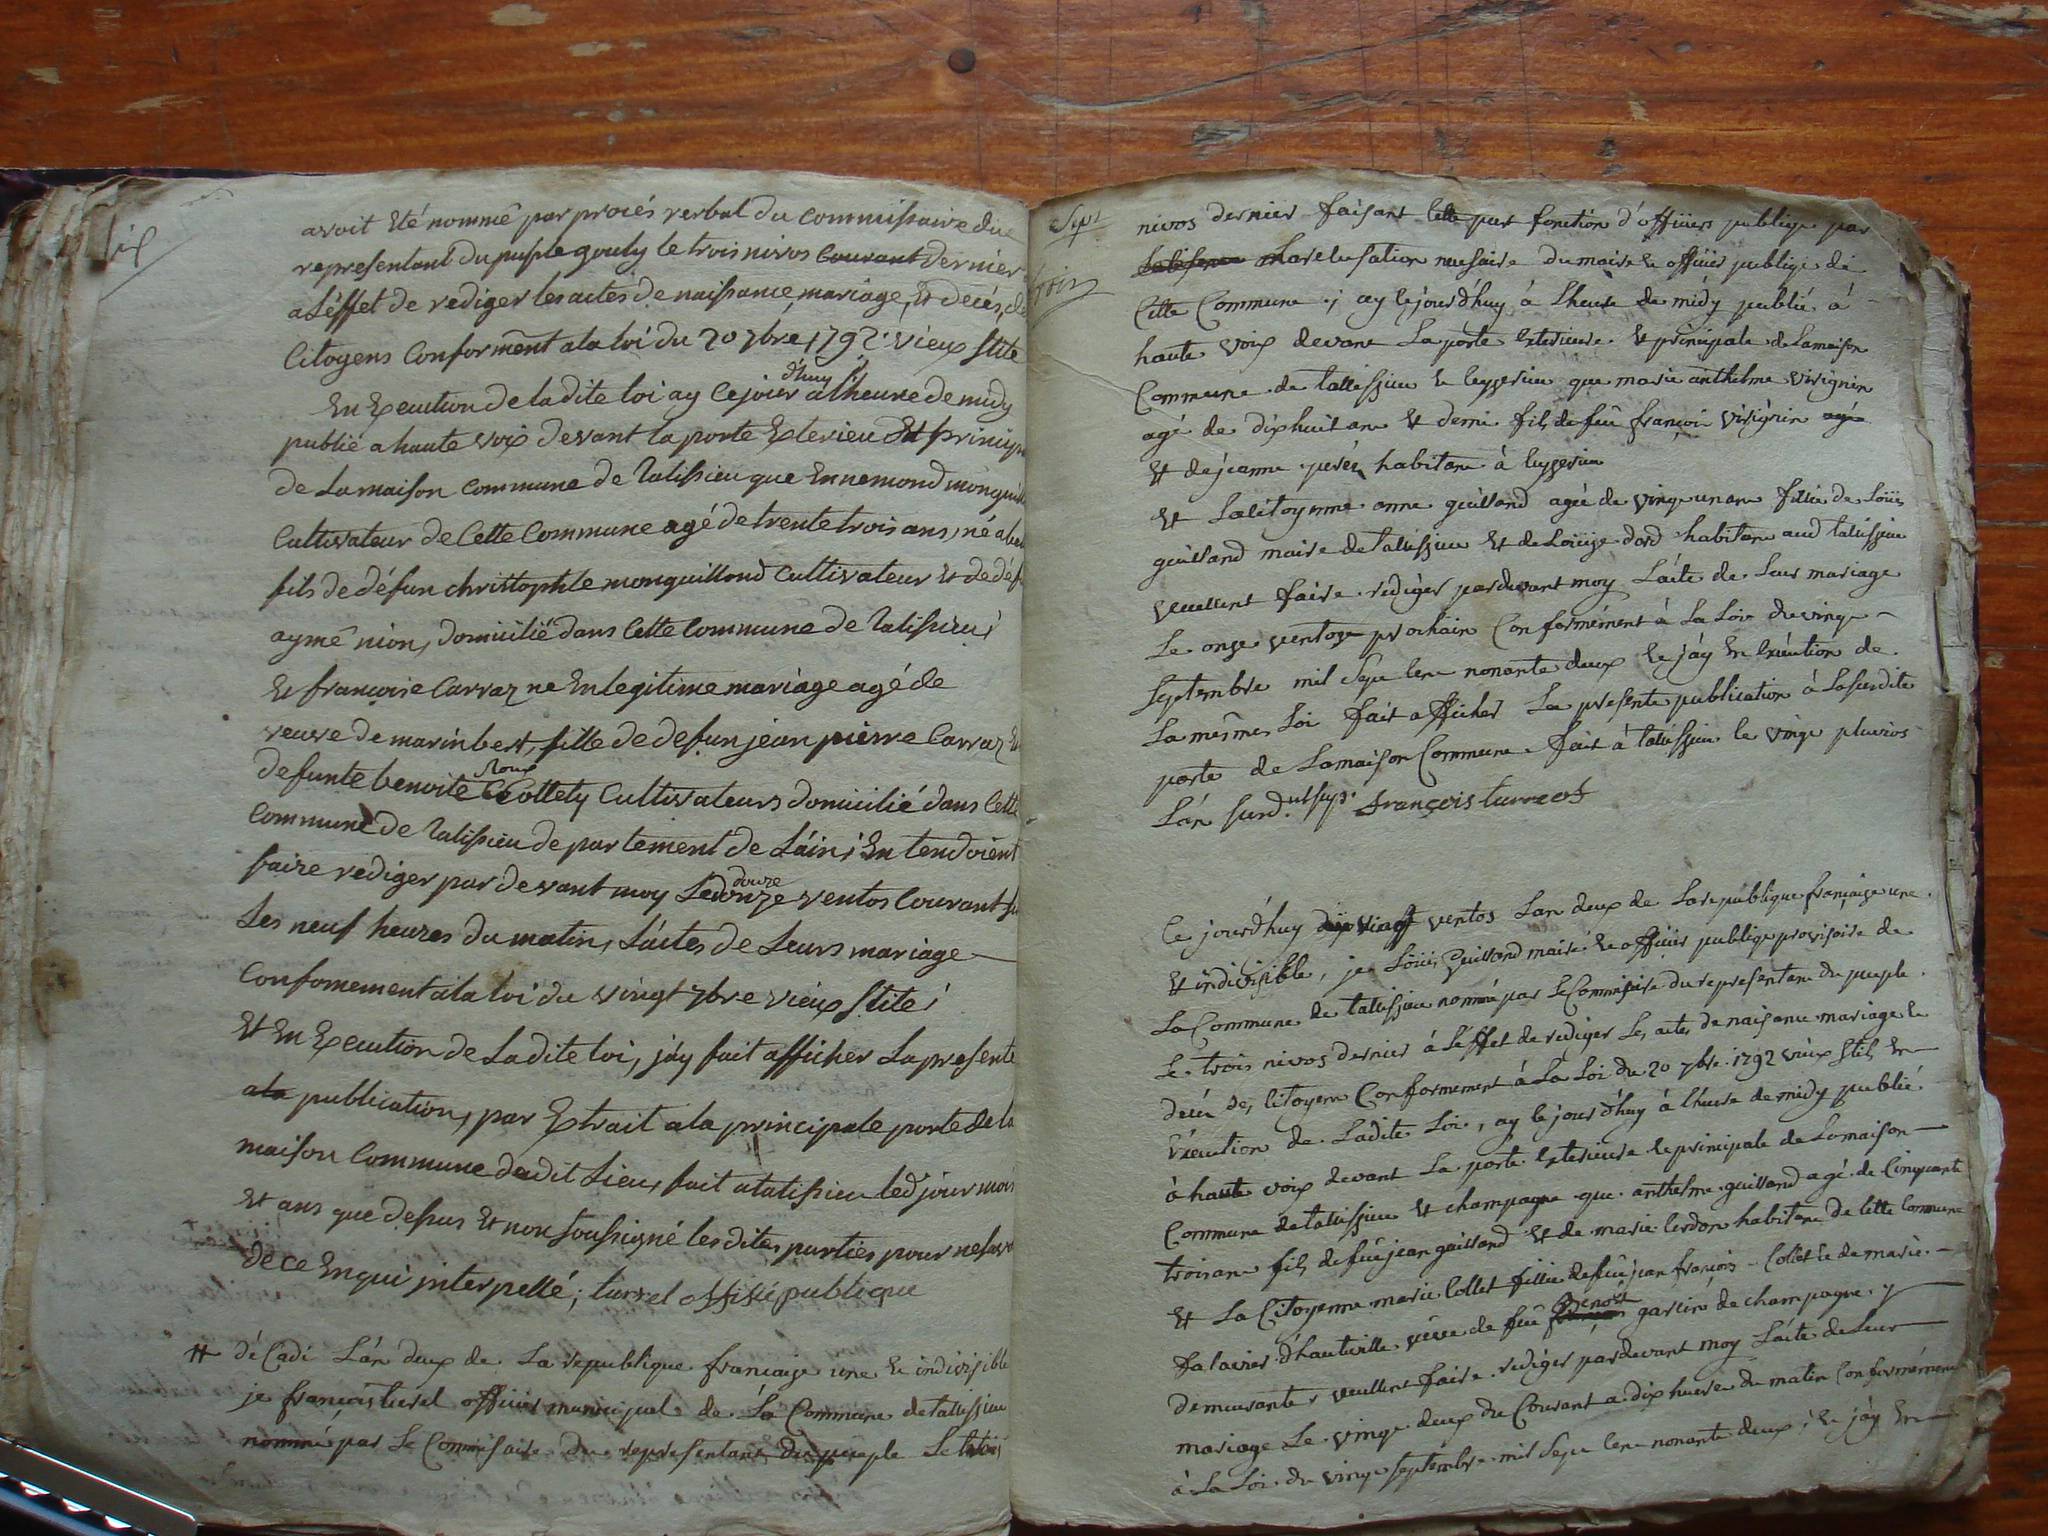 six
avoit Eté nommé par procès verbal du commissaire du
representant du peuple gouly le trois nivos courant dernier
a Léffet de rediger les actes de naissance, mariage, Et decés, de
Citoyens Conformem̃t a la loi du 20 7bre 1792 vieux stile
En Execution de ladite loi ay Cejour d'huy a lheure de midy
publié a haute voix devant la porte Exterieu Et princip
de La maison commune de Talissieu que Ennemond monguill
Cultivateur de Cette Commune agé de trente trois ans, né a
fils de défun christtophle monguilloud Cultivateur Et de déf
aymé nion, domicilié dans Cette Commune de Talissieu,
Et françoise Carraz ne En legitime mariage agé de
veuve de marin bert, fille de defun jean pierre Carraz Et
defunte benoite Roux Collety Cultivateurs domicilié dans Cette
Commune de Talissieu departement de L'áin, Entendoient
faire rediger par devant moy Le douze ventos Courant
Les neuf heures du matin, L'áctes de Leurs mariage
Confomement a la loi du vingt 7bre vieux stile,
Et En Execution de Ladite loi, j'áy fait afficher La presente
ala publication, par Extrait a la principale porte de la
maison Commune dudit Lieu, fait a talissieu led jour mois
Et ans que dessus Et non soussigné les dites parties pour ne savo
de ce Enqui jnterpellé; turrel officié publique
# décadi L'án deux de La republique francaise une Et indivisible
je françois turrel officier municipal de La Commune de tallissieu
nommé par Le Commissaire du representant du peuple Le trois
Sept
trois
nivos dernier faisant cette part fonction d'officiers publique par
la recusation nessaire du maire Et officier publiqe de
Cette Commune, j'ay cejourd'huy à Lheure de midy publié à
haute voix devant La porte Exterieure Et principale de Lamaison
Commune de tallissieu Et leyssieu que marie anthelme virignin
agé de dixhuit an Et demi fils de feû françois virignin agé
Et de jeanne perés habitant à leyssieu
Et La Citoyenne anne guilland agée de vingt un an fillie de Loüis
guilland maire de tallissieu Et de Loüise dord habitant aud tallissieu
veuillent faire rediger pardevant moy L'ácte de Leur mariage
Le onze ventose prochain Conformément à La Loi du vingt
septembre mil sept cent nonante deux Et j'áy En Exécution de
La même Loi fait afficher La presente publication à La susdite
porte de La maison Commune fait à tallissieu le vingt pluvios
L'án susd. ut sup. françois turrel
Ce jourd'huy dix vingt ventos Lan deux de La republique française une
Et indivisible, je Loüis Guilland maire Et officier publiqe provisoire de
La Commune de tallissieu nommé par Le Commissaire du representant du peuple
Le trois nivos dernier à Leffet de rediger Les actes de naisance mariage Et
décés des Citoyens Conformement à La Loi du 20 7bre 1792 vieux stil, En
Exécution de Ladite Loi, ay Cejourd'huy à Lheure de midy publié
à haute voix devant La porte Exterieure Et principale de La maison
Commune de tallissieu Et champagne que anthelme guilland agé de Cinquante
trois ans fils de feû jean guilland Et de marie Cerdon habitant de Cette Commune
Et La Citoyenne marie Collet fillie de feû jean françois Collet Et de marie
falavier d'hauteville veuve de feû Benoit garsin de champagne y
demeurante, veuillent faire rediger pardevant moy L'ácte de Leur
mariage Le vingt deux du Courant a dix heure du matin Conformément
à La Loi du vingt septembre mil sept cent nonante deux, Et j'áy En